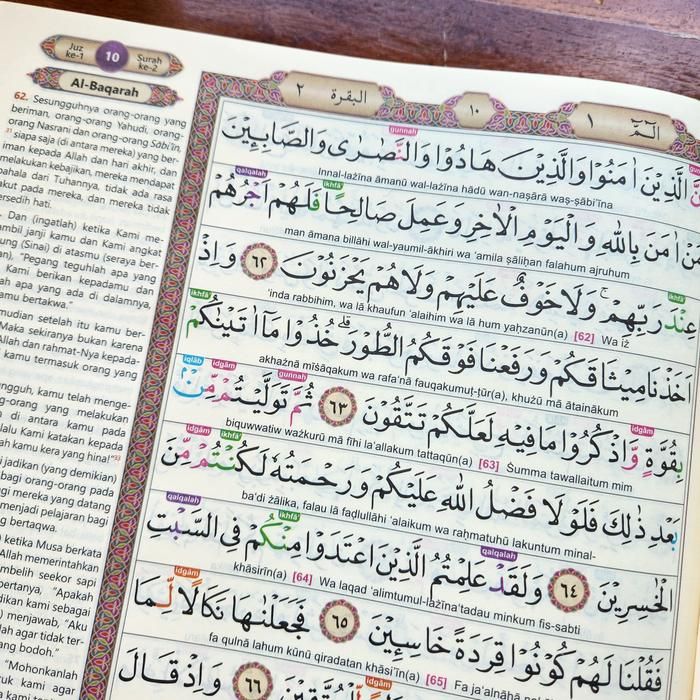 Juz ke-1
10
Surah ke-2
Al-Baqarah
62. Sesungguhnya orang-orang yang
beriman, orang-orang Yahudi, orang-
orang Nasrani dan orang-orang Sābi'īn,
siapa saja (di antara mereka) yang ber-
iman kepada Allah dan hari akhir, dan
melakukan kebajikan, mereka mendapat
pahala dari Tuhannya, tidak ada rasa
takut pada mereka, dan mereka tidak
bersedih hati.
Dan (ingatlah) ketika Kami me-
janji kamu dan Kami angkat
(Sinai) di atasmu (seraya ber-
"Pegang teguhlah apa yang
Kami berikan kepadamu dan
apa yang ada di dalamnya,
kamu bertakwa."
setelah itu kamu ber-
Maka sekiranya bukan karena
Allah dan rahmat-Nya kepada-
kamu termasuk orang yang
kamu telah menge-
yang melakukan
di antara kamu pada
lalu Kami katakan kepada
kamu kera yang hina!"
jadikan (yang demikian)
bagi orang-orang pada
bagi mereka yang datang
menjadi pelajaran bagi
bertaqwa.
ketika Musa berkata
Allah memerintahkan
sapi
"Apakah
kami sebagai
menjawab, "Aku
Allah agar tidak ter-
yang bodoh."
"Mohonkanlah
kami agar
البقرة ٢
١٠
الٓمّٓ ١
gunnah
الَّذِيْنَ اٰمَنُوْا وَالَّذِيْنَ هَادُوْا وَالنَّصٰرٰى وَالصَّابِـِٕيْنَ
Innal-lażīna āmanū wal-lażīna hādū wan-naṣārā waṣ-ṣābi'īna
qalqalah ikhfā'
مَنْ اٰمَنَ بِاللّٰهِ وَالْيَوْمِ الْاٰخِرِ وَعَمِلَ صَالِحًا فَلَهُمْ اَجْرُهُمْ
man āmana billāhi wal-yaumil-ākhiri wa 'amila ṣāliḥan falahum ajruhum
ikhfā'
عِنْدَ رَبِّهِمْۚ وَلَا خَوْفٌ عَلَيْهِمْ وَلَا هُمْ يَحْزَنُوْنَ ٦٢ وَاِذْ
'inda rabbihim, wa lā khaufun 'alaihim wa lā hum yaḥzanūn(a) [62] Wa iż
ikhfā'
اَخَذْنَا مِيْثَاقَكُمْ وَرَفَعْنَا فَوْقَكُمُ الطُّوْرَۗ خُذُوْا مَآ اٰتَيْنٰكُمْ
akhażnā mīṡāqakum wa rafa'nā fauqakumuṭ-ṭūr(a), khużū mā ātainākum
iqlāb idgām gunnah idgām
بِقُوَّةٍ وَّاذْكُرُوْا مَا فِيْهِ لَعَلَّكُمْ تَتَّقُوْنَ ٦٣ ثُمَّ تَوَلَّيْتُمْ مِّنْۢ
biquwwatiw ważkurū mā fīhi la'allakum tattaqūn(a) [63] Ṡumma tawallaitum mim
idgām ikhfā'
بَعْدِ ذٰلِكَ فَلَوْلَا فَضْلُ اللّٰهِ عَلَيْكُمْ وَرَحْمَتُهٗ لَكُنْتُمْ مِّنَ
ba'di żālika, falau lā faḍlullāhi 'alaikum wa raḥmatuhū lakuntum minal-
qalqalah ikhfā' qalqalah
الْخٰسِرِيْنَ ٦٤ وَلَقَدْ عَلِمْتُمُ الَّذِيْنَ اعْتَدَوْا مِنْكُمْ فِى السَّبْتِ
khāsirīn(a) [64] Wa laqad 'alimtumul-lażīna'tadau minkum fis-sabti
idgām
فَقُلْنَا لَهُمْ كُوْنُوْا قِرَدَةً خَاسِـِٕيْنَ ٦٥ فَجَعَلْنٰهَا نَكَالًا لِّمَا
fa qulnā lahum kūnū qiradatan khāsi'īn(a) [65] Fa ja'alnāhā
idgām
٦٦ وَاِذْ قَالَ